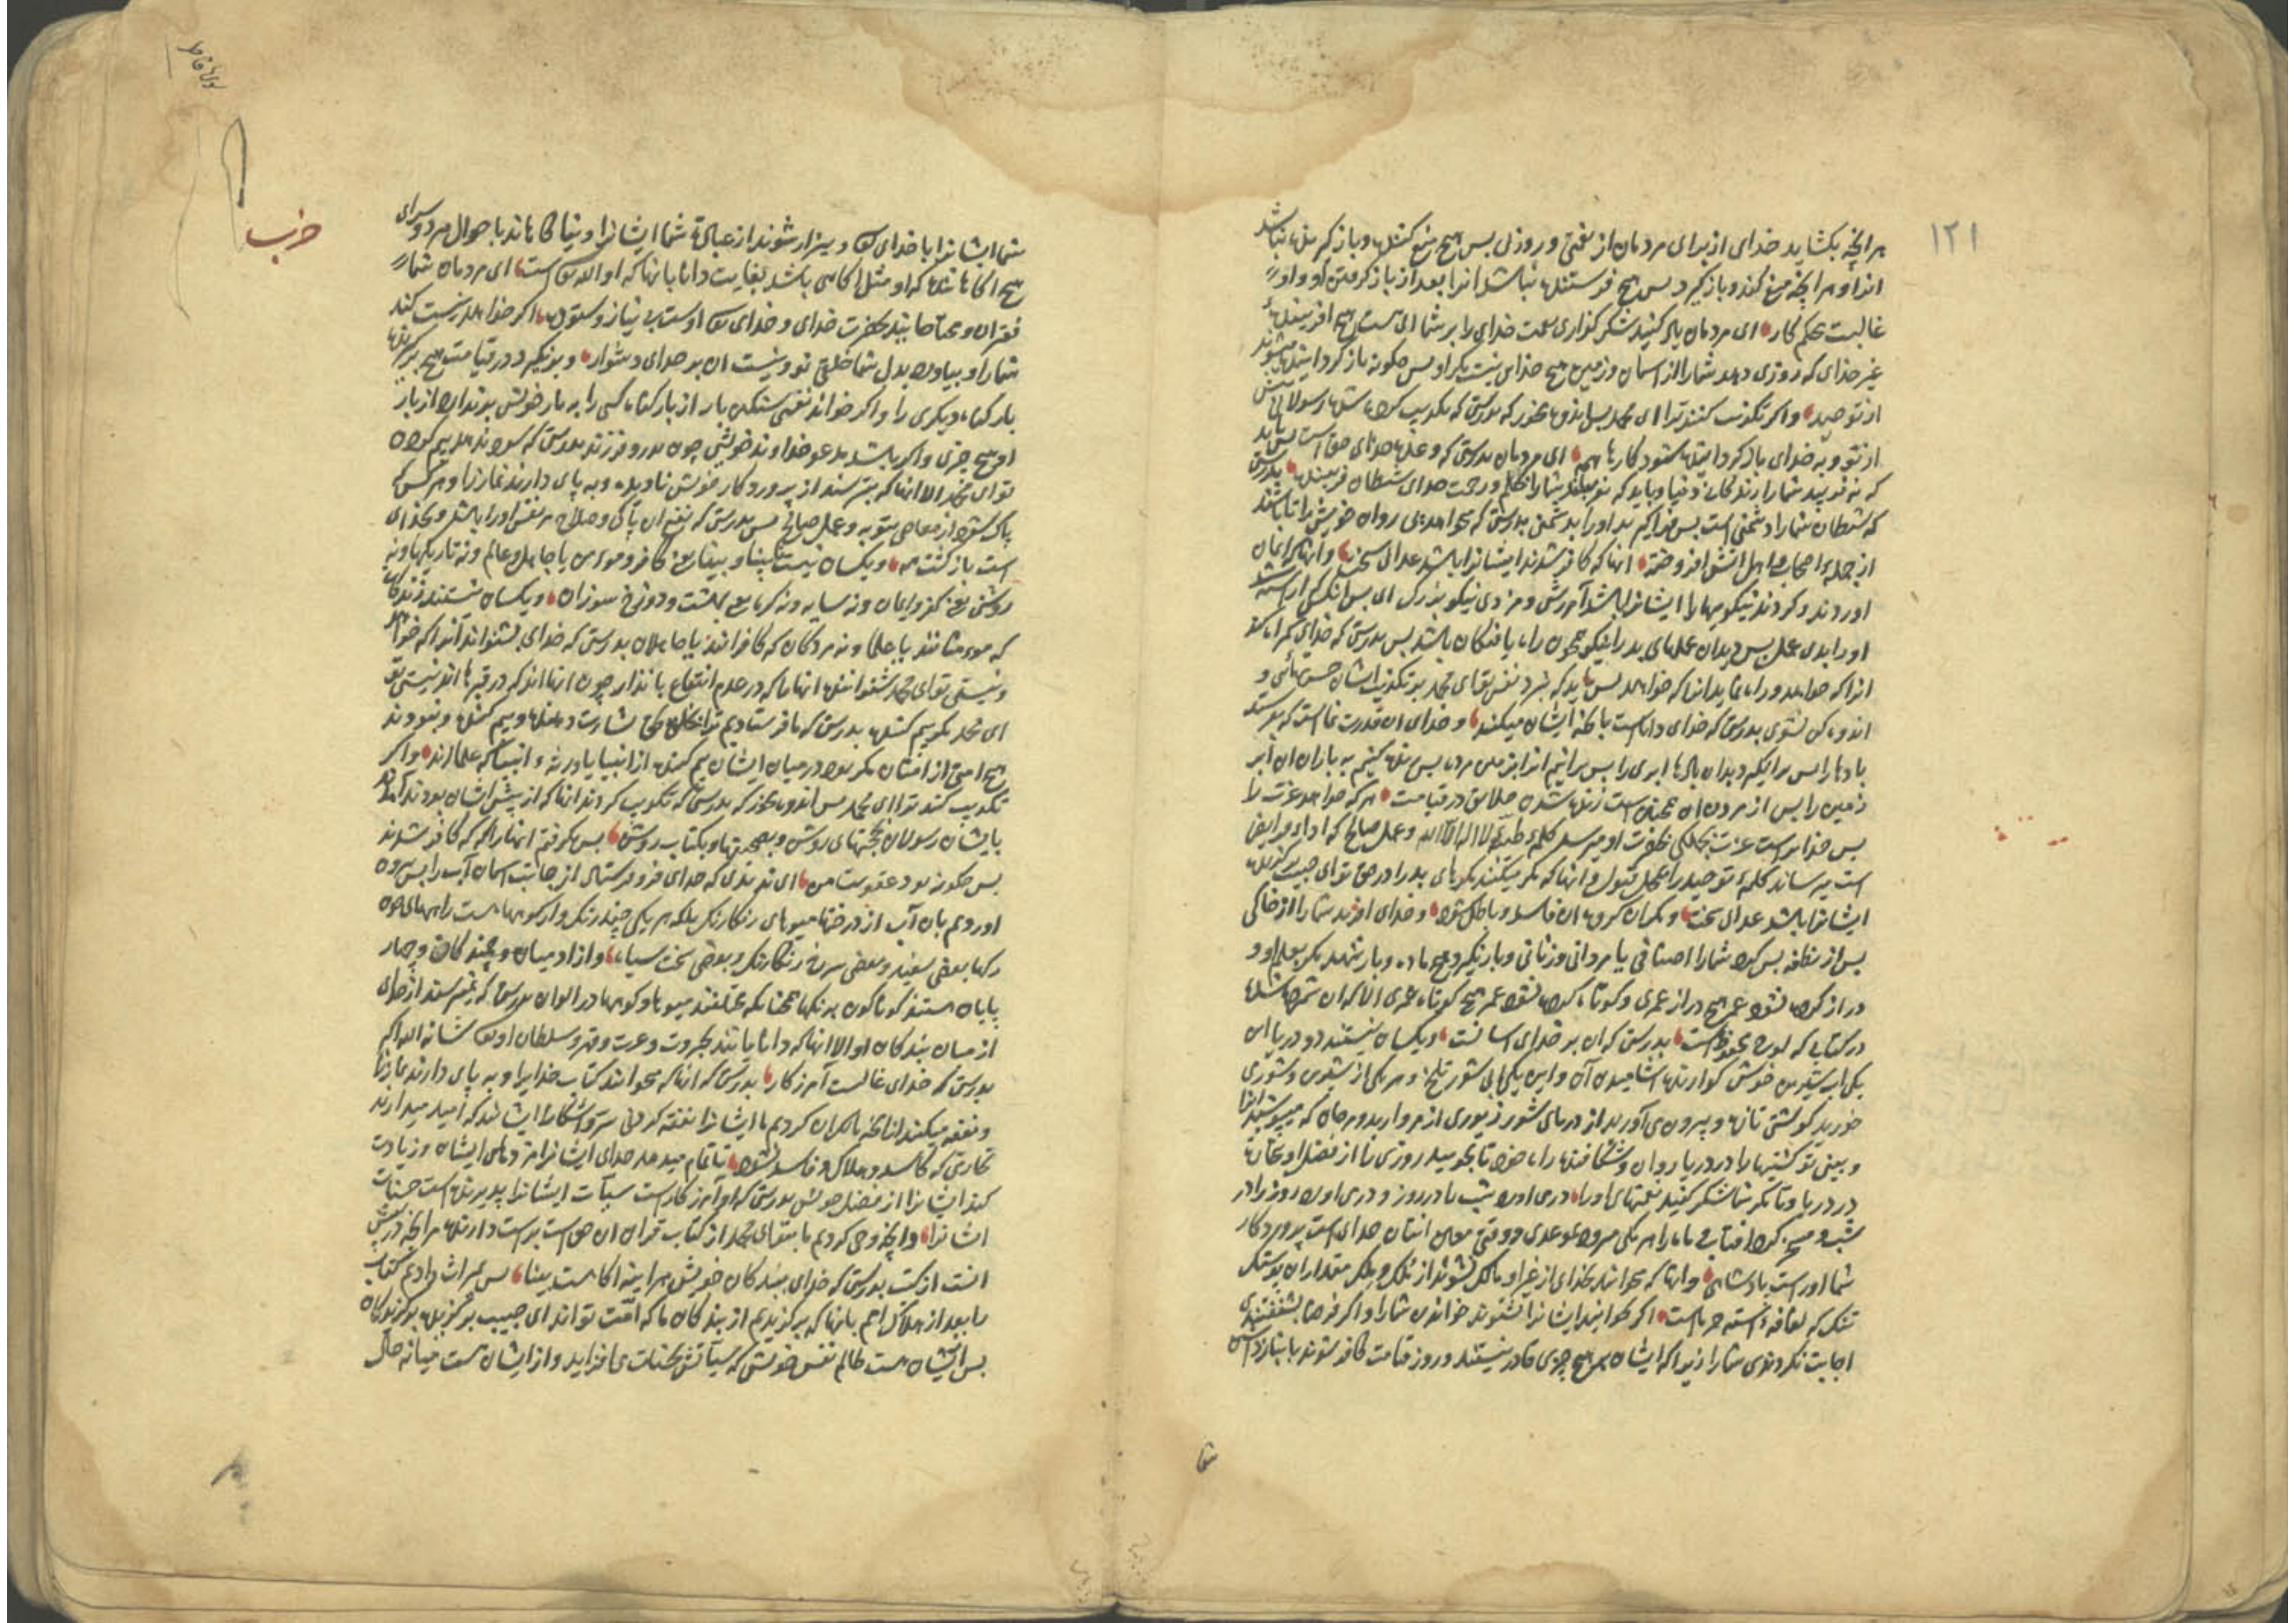 ١٢١
هر انچه بکشاید خدای از برای مردمان از نعمتی و روزی بس هیچ منع کننده و باز گیرنده نباشد
انرا و هر انچه منع کند و باز گیرد بس هیچ فرستنده نباشد انرا بعد از باز گرفتن او و او
غالبست محکم کار ای مردمان یاد کنید شکر گذاری نعمت خدای را بر شما ای هست هیچ افریننده
غیر خدای که روزی دهد شما را از اسمان و زمین هیچ خدای نیست مگر او بس چگونه باز گردانیده میشوند
از توحید و اگر تکذیب کنند ترا ای محمد بس اندوه مخور که بدرستی که تکذیب کرده شده رسولانی پیش
از تو و به خدای باز گردانیده شود کارها همه ای مردمان بدرستی که وعده خدای حق است بس باید
که نه فریبد شما را زندگانی دنیا و باید که نفریبد شما را بحلم و رحمت خدای شیطان فریبنده بدرستی
که شیطان شما را دشمنی است بس فرا گیرید او را بدشمنی بدرستی که میخواند پی روان خویش را تا باشند
از جمله اصحاب و اهل اتش افروخته انها که کافر شدند ایشانرا باشد عذابی سخت و انها که ایمان
اوردند و کردند نیکوییها را ایشانرا باشد آمرزش و مزدی نیکو بزرگ ای بس انکسی که اراسته شد
او را بدی عمل بس دیدان عملهای بد را نیکو همچون راه یافتگان باشد بس بدرستی که خدای گمراه کند
انرا که خواهد و راه نماید انرا که خواهد بس باید که نبرد نفس تو ای محمد بر تکذیب ایشان حسرتهائی و
اندوه کن نشوی بدرستی که خدای داناست بانچه ایشان میکنند و خدای ان قدرت نماست که بفرستد
بادها را بس برانگیزد بدان بادها ابری را بس برانیم انرا بزمین مرده بس زنده کنیم به باران ان ابر
زمین را بس از مردن ان همچنین است زنده شدن خلایق در قیامت هر که خواهد عزت را
بس خدا یراست عزت بجملگی بحضرت او میرسد کلمهٔ طیبه لا اله الا الله و عمل صالح که اداء فرایض
است میرساند کلمهٔ توحید را بمحل قبول و انها که مکر میکنند مکرهای بد را در حق تو ای حبیب برگزیده
ایشانرا باشد عذابی سخت و مکر ان گروه ان فاسد و باطل شود و خدای افرید شما را از خاکی
بس از نطفه بس کرد شما را اصنافی با مردانی و زنانی و بار نگیرد هیچ ماده و بار ننهد مگر بعلم او و
دراز کرده نشود عمر هیچ دراز عمری و کوتاه کرده نشود عمر هیچ کوتاه عمری الا که ان ثبت شده
در کتابی که لوح محفوظ است بدرستی که ان بر خدای اسانست و یکسان نیستند دو دریا این
یکی اب شیرین خوش گوارنده اشامیدن آن و این یکی ابی شور تلخ و هر یکی از شیرین و شوری
خورید گوشتی تازه و بیرون می آورید از دریای شور زیوری از مروارید و مرجان که میپوشید انرا
و بینی تو کشتیها را در دریا روان و شکافنده راه خود تا بجویید روزی را از فضل او بتجارت
در دریا و تا مگر شما شکر کنید نعمتهای او را در می آورد شب را در روز و در می آورد روز را در
شب و مسخر کرد افتاب و ماه را هر یکی میرود بموعدی و وقتی معین اینان خدای است پروردگار
شما او راست پادشاهی و انها که میخوانند بخدای از غیر او مالک نشوند از ملک و ملک مقدار ان پوستک
تنک که لفافه دانسته خرماست اگر بخوانید ایشانرا نشنوند خواندن شما را و اگر فرضا بشنفتندی
اجابت نکردندی شما را زیرا که ایشان بر هیچ چیزی قادر نیستند و روز قیامت کافر شوند بانبازی
شما
سوره فاطر
حزب
شما ایشانرا با خدای تعالی و بیزار شوند از عبادت شما ایشانرا و بیناکاناند باحوال مردو سرای
هیچ اگاهاننده که او مثل اگاهی باشد بغایت دانا بانها که او الله تعالی است ای مردمان شما
فقیران و محتاجانید بحضرت خدای و خدای تعالی اوست بی نیاز و ستوده اگر خواهد نیست کند
شما را و بیاورد بدل شما خلقی نو و نیست ان بر خدای دشوار و برنگیرد در قیامت هیچ بر گیرنده
بار گناه دیگری را و اگر خواند نفسی سنگین بار از بار گناه کسی را به بار خویش برندارد از بار
او هیچ چیزی و اگر باشد مدعو خداوند خویشی چون پدر و فرزند بدرستی که سود ندهد بیم کردن
تو ای محمد الا انها که بترسند از پروردگار خویش نادیده و به پای دارند نماز را و هر کس که
پاک شود از معاصی بتوبه و عمل صالح بس بدرستی که نفع ان پاکی و صلاح مر نفس او را باشد و بخدای
است بازگشت همه و یکسان نیست نابینا و بینا یعنی کافر و مومن یا جاهل و عالم و نه تاریکیها و نه
روشنی یعنی کفر و ایمان و نه سایه و نه گرما یعنی بهشت و دوزخ سوزان و یکسان نیستند زندگان
که مومنانند یا علما و نه مردگان که کافرانند یا جاهلان بدرستی که خدای بشنواند آنرا که خواهد
و نیستی تو ای محمد شنواننده انها را که در عدم انتفاع بانذار چون انها اند که در قبرها اند نیستی تو
ای محمد مگر بیم کننده بدرستی که ما فرستادیم ترا بخلق بحق بشارت دهنده و بیم کننده و نبودند
هیچ امتی از امتان مگر بود در میان ایشان بیم کننده از انبیا یا ورثهٔ انبیا که علمااند و اگر
تکذیب کنند ترا ای محمد بس اندوه مخور که بدرستی که تکذیب کردند انها که از پیش ایشان بودند آمدند
بایشان رسولان بحجتهای روشن و بصحیفها و بکتاب روشن بس بگرفتم انها را که کافر شدند
بس چگونه بود عقوبت من ای ندیدی که خدای فرو فرستاد از جانب اسمان آب را بس برون
اوردیم بان آب از درختها میوهای رنگارنگ بلکه هر یکی چند رنگ و از کوهها هست راههای چون
رگها بعضی سفید و بعضی سرخ رنگارنگ و بعضی سخت سیاه و از ادمیان و جنبندگان و چهار
پایان هستند گوناگون به رنگها همچنانکه مختلفند میوها و کوهها در الوان بدرستی که نمیترسند از خدای
از میان بندگان او الا انها که دانایانند بجبروت و عزت و قهر و سلطان او تعالی شانه الله اکبر
بدرستی که خدای غالبست آمرزگار بدرستی که انها که میخوانند کتاب خدایرا و به پای دارند نماز را
و نفقه میکنند از انچه ما کرامت کردیم با ایشانرا نفقه کردنی سر و اشکارا ایشانند که امید میدارند
تجارتی که کاسد و هلاک و فاسد نشود تا تمام میدهد خدای ایشانرا مزدهای ایشان و زیادت
کند ایشانرا از فضل خویش بدرستی که او آمرزگارست سیآت ایشانرا پذیرنده است حسنات
ایشانرا و انچه وحی کردیم ما بتو ای محمد از کتاب قران ان حق است براست دارنده هر انچه در پیش
انست از کتب بدرستی که خدای ببندگان خویش هر اینه اگاهست بینا بس بمیراث دادیم کتاب
را بعد از هلاک امم بانها که برگزیدیم از بندگان ما که امّت تواند ای حبیب برگزیده برگزیدگان
بس از ایشان هست ظالم نفس خویشی که سیآتش بحسنات می افزاید و از ایشان هست میانه حال